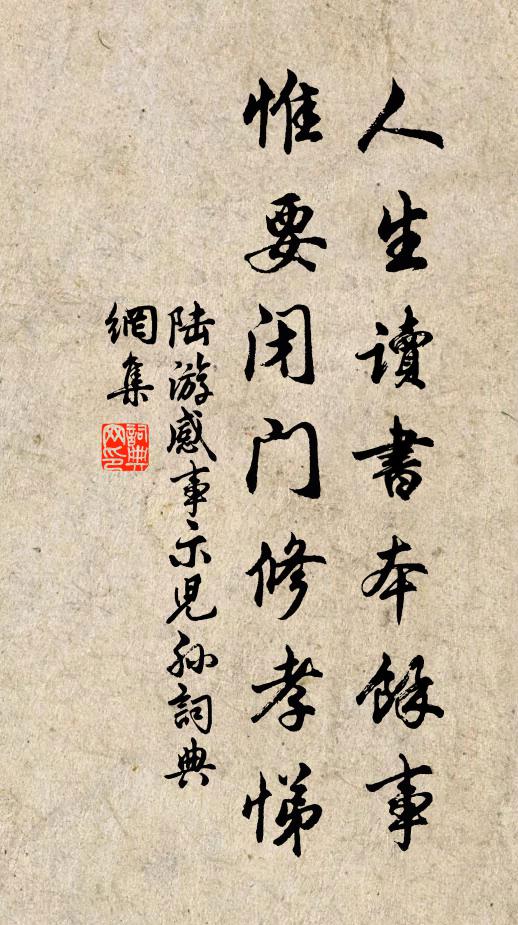 人生讀書本餘事
惟要闭门修孝悌
陆游感事示児孙詞典
網集
詞典网印